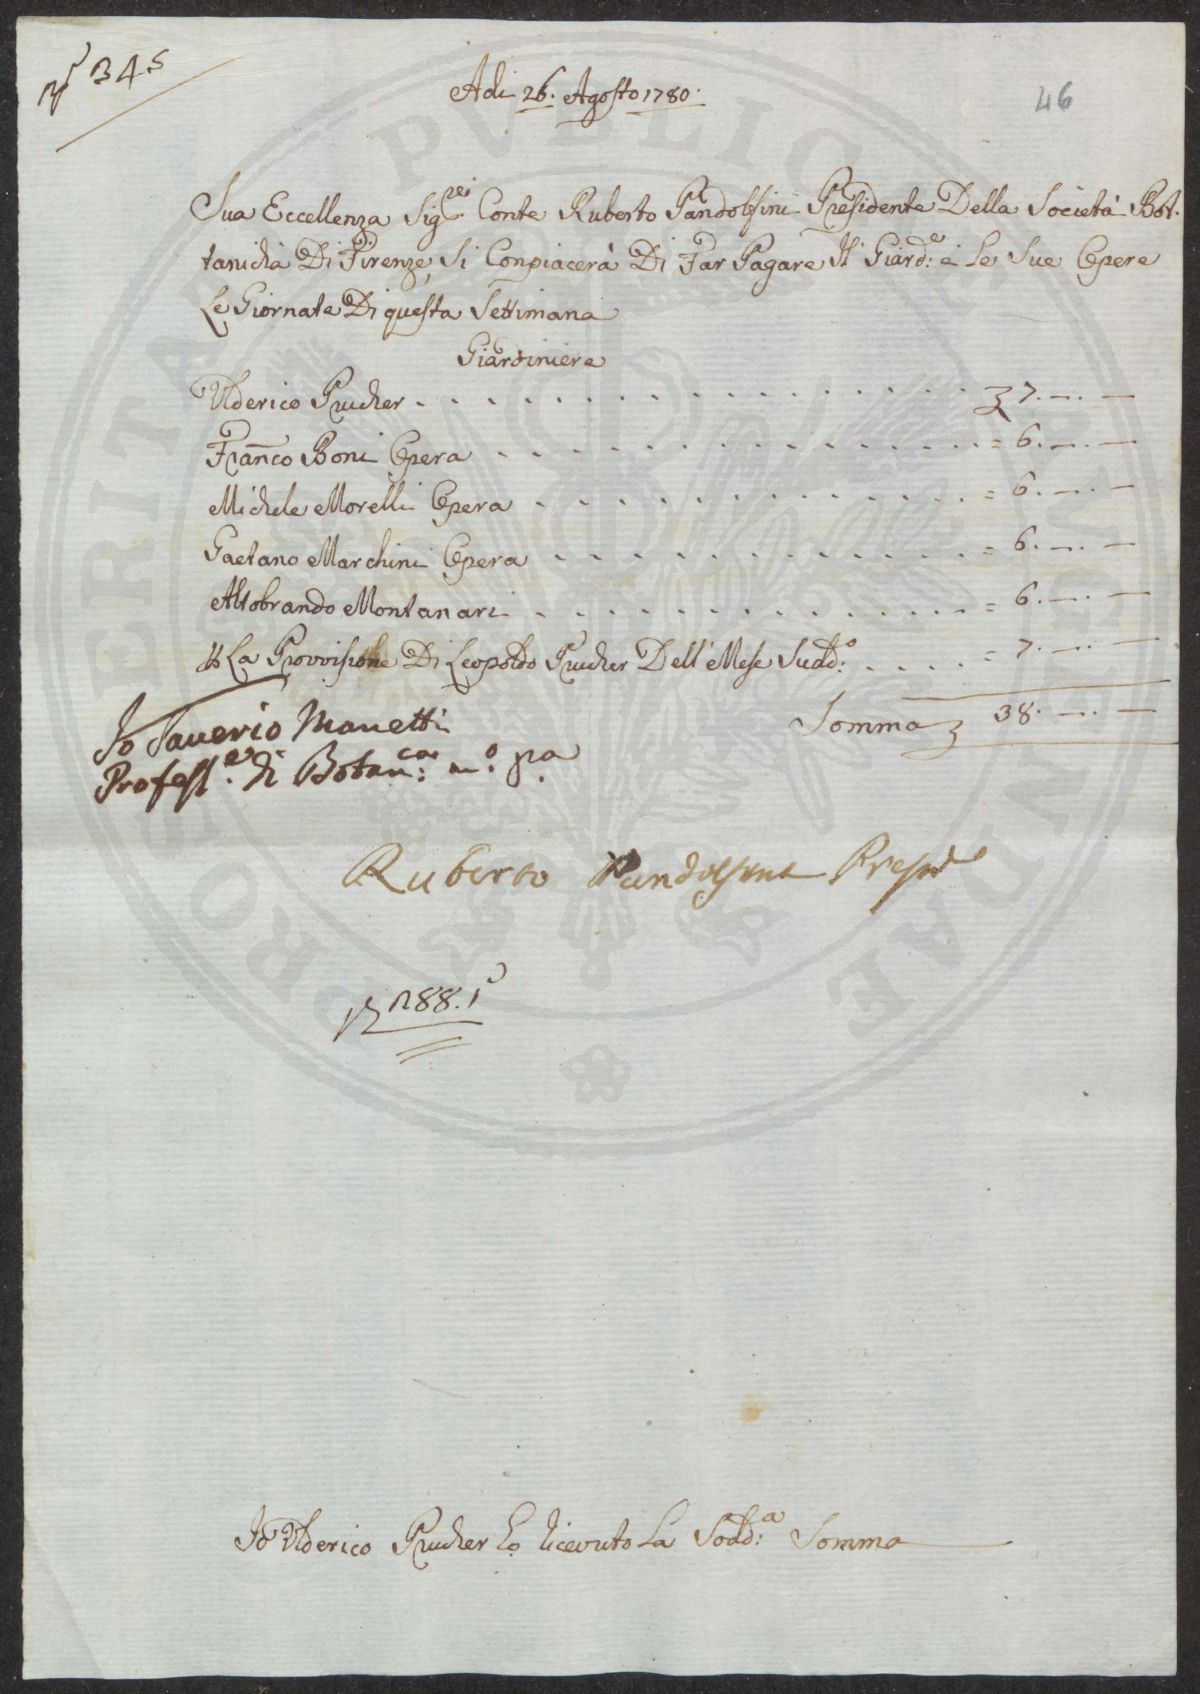 N° 345
Adi 26. Agosto 1780.
46
Sua Eccellenza Sig.re Conte Ruberto Pandolfini Presidente Della Società Bot-
tanicha Di Firenze, Si Conpiacerà Di Far Pagare Il Giard.e e Le Sue Opere
Le Giornate Di questa Settimana
Giardiniere
Ulderico Prucher . . . . . . . . . . . . . . . . 7. —. —
Franco Boni Opera . . . . . . . . . . . . . . = 6. —. —
Michele Morelli Opera . . . . . . . . . . . . . = 6. —. —
Gaetano Marchini Opera . . . . . . . . . . . . . = 6. —. —
Altobrando Montanari . . . . . . . . . . . . . = 6. —. —
La Provvisione Di Leopoldo Prucher Dell' Mese Sudd.o . . . . . = 7. —. —
Somma 38. —. —
Io Saverio Manetti
Profess.e di Botan.ca m.o pa
Ruberto Pandolfini Presid.e
288.
Io Ulderico Prucher ho ricevuto La Sodd.a Somma
PROSPERITATI PUBLICAE AUGENDAE